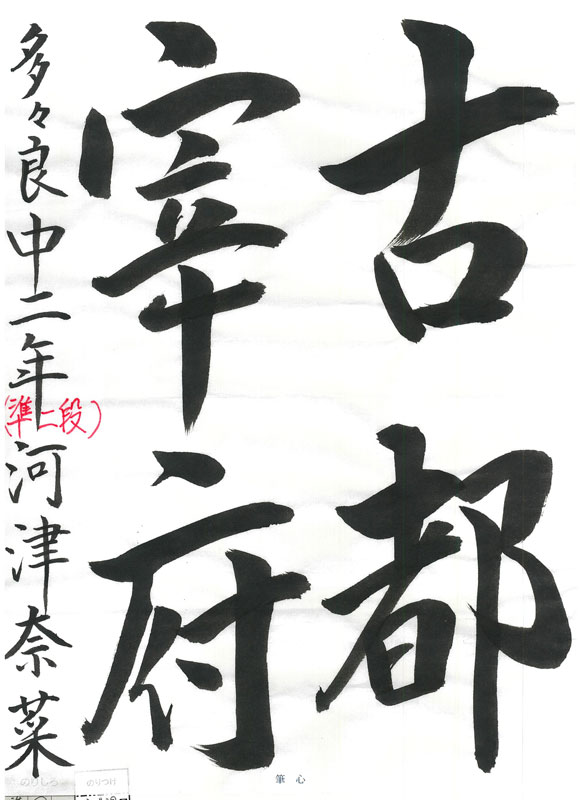 古都
宰府
多々良中二年河津奈菜
(準二段)
筆心
のりしろ
のりづけ